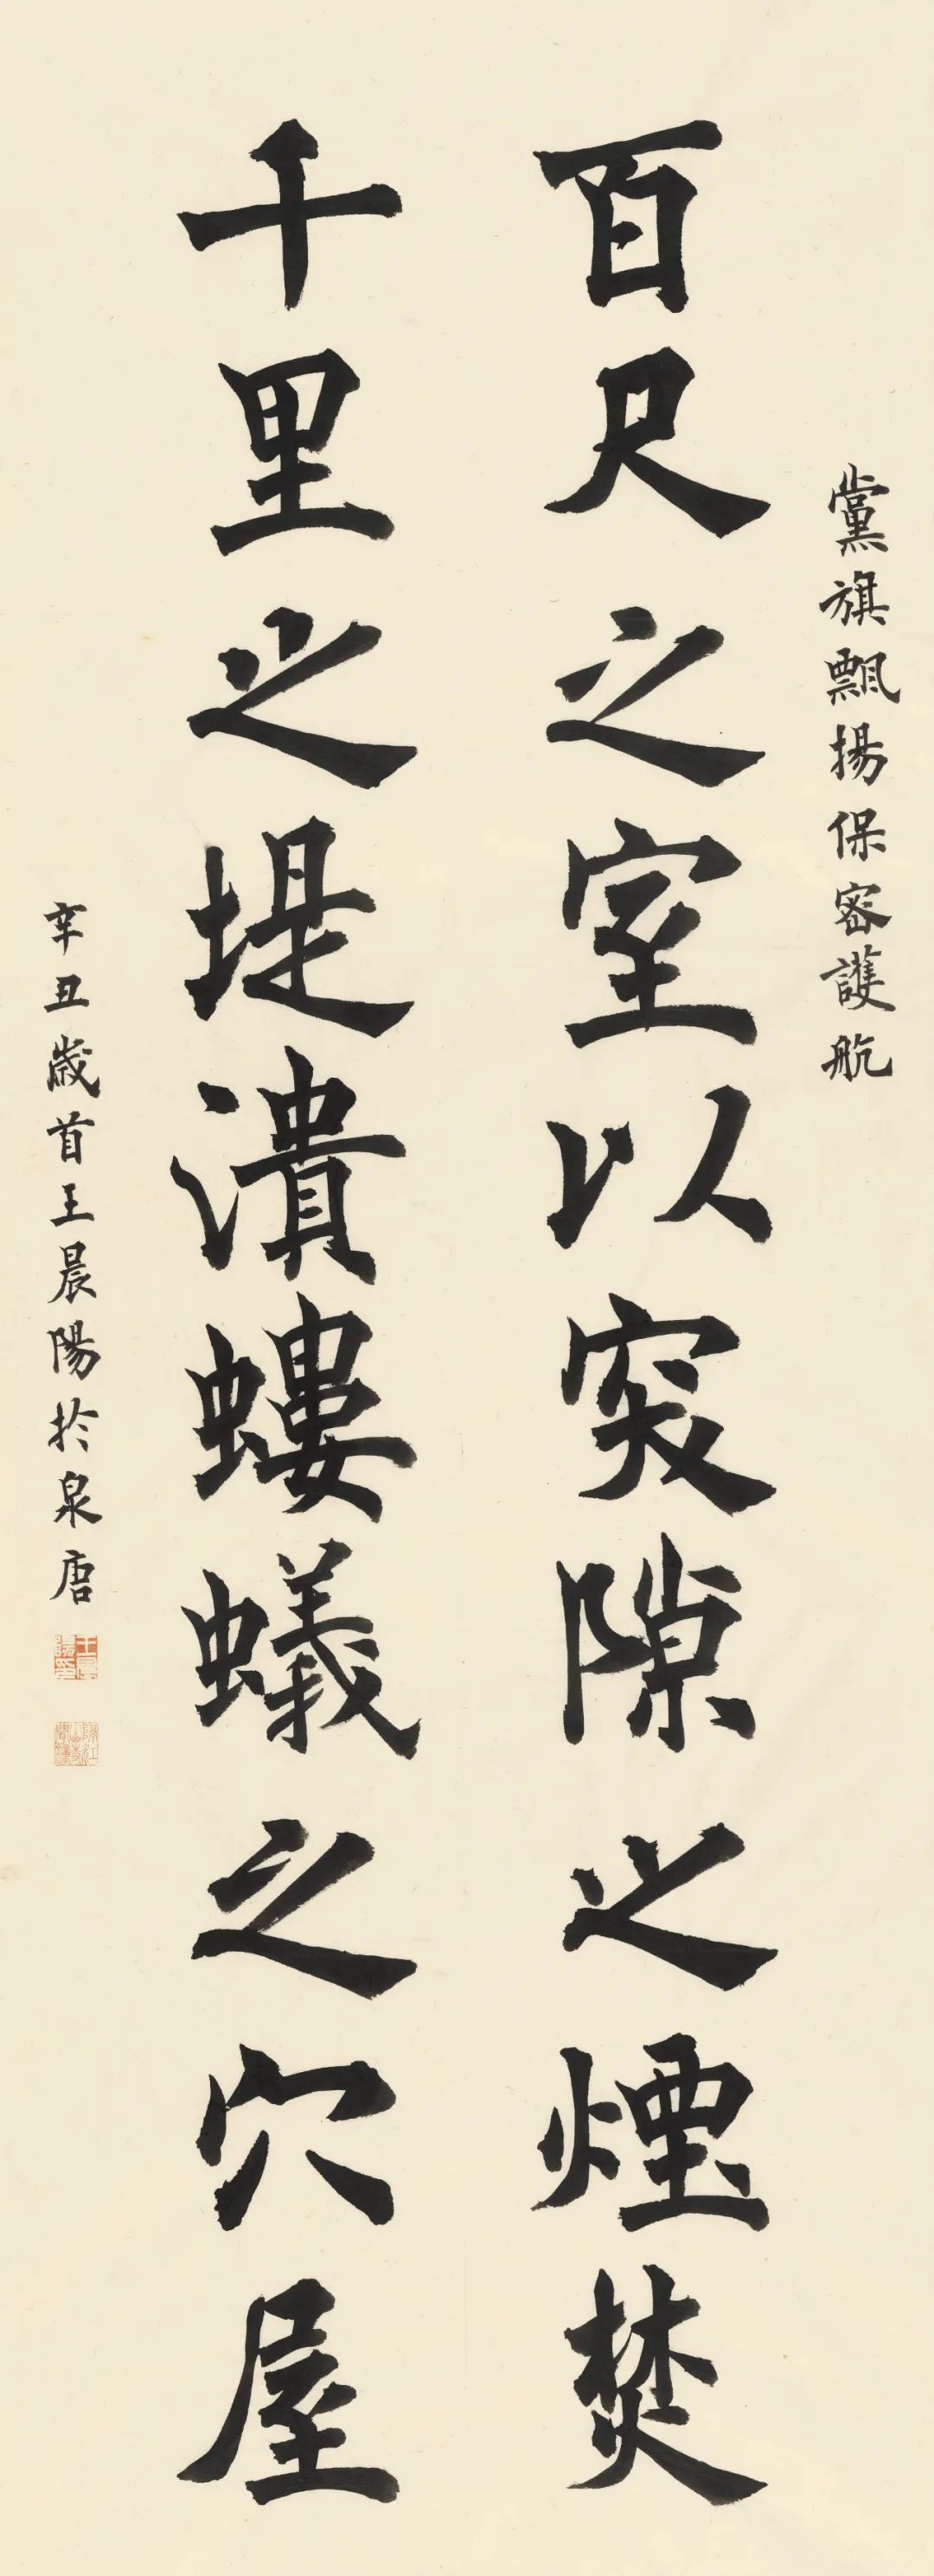 黨旗飄揚保密護航
百尺之室以突隙之煙焚
千里之堤潰螻蟻之穴屋
辛丑歲首王晨陽於泉唐